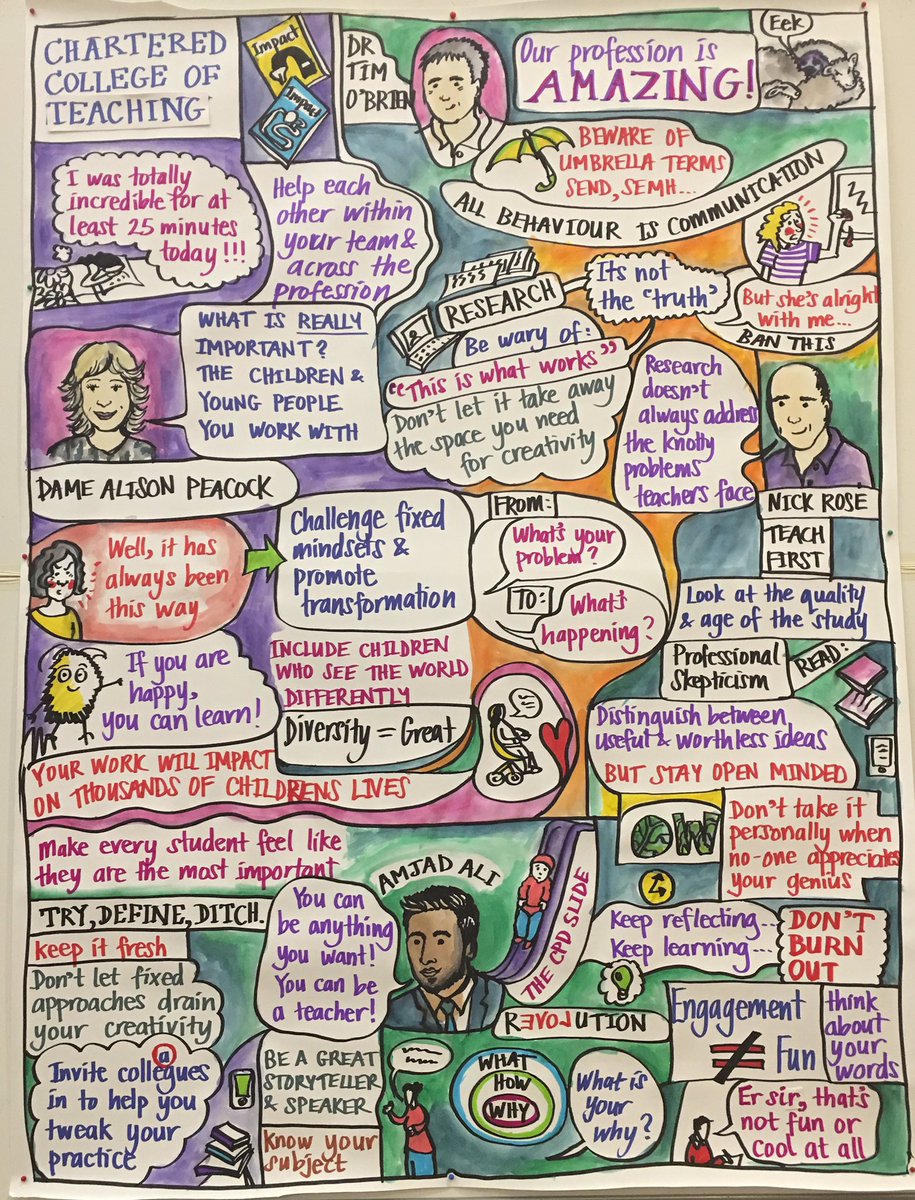 CHARTERED
COLLEGE OF
TEACHING
Impact
Impact
DR
TIM
O'BRIEN
Our profession is
AMAZING!
Eek
BEWARE OF
UMBRELLA TERMS
SEND, SEMH...
ALL BEHAVIOUR IS COMMUNICATION
I was totally
incredible for at
least 25 minutes
today!!!
Help each
other within
your team &
across the
profession
RESEARCH
Its not
the 'truth'
But she's alright
with me...
BAN THIS
Be wary of:
"This is what works"
Don't let it take away
the space you need
for creativity
WHAT IS REALLY
IMPORTANT?
THE CHILDREN &
YOUNG PEOPLE
YOU WORK WITH
DAME ALISON PEACOCK
Research
doesn't
always address
the knotty
problems
teachers face
NICK ROSE
TEACH
FIRST
Well, it has
always been
this way
Challenge fixed
mindsets &
promote
transformation
FROM:
What's your
problem?
TO:
What's
happening?
Look at the quality
& age of the study
Professional
Skepticism
READ:
Distinguish between
useful & worthless ideas
BUT STAY OPEN MINDED
If you are
happy,
you can learn!
INCLUDE CHILDREN
WHO SEE THE WORLD
DIFFERENTLY
Diversity = Great
YOUR WORK WILL IMPACT
ON THOUSANDS OF CHILDRENS LIVES
OW
Don't take it
personally when
no-one appreciates
your genius
Make every student feel like
they are the most important
AMJAD ALI
THE CPD SLIDE
TRY, DEFINE, DITCH.
keep it fresh
Don't let fixed
approaches drain
your creativity
You can
be anything
you want!
You can be
a teacher!
Keep reflecting...
Keep learning...
DON'T
BURN
OUT
REVOLUTION
Engagement
≠ Fun
think
about
your
words
a
Invite collegues
in to help you
tweak your
practice
BE A GREAT
STORYTELLER
& SPEAKER
Know your
subject
WHAT
HOW
WHY
What is
your
why?
Er sir, that's
not fun or
cool at all